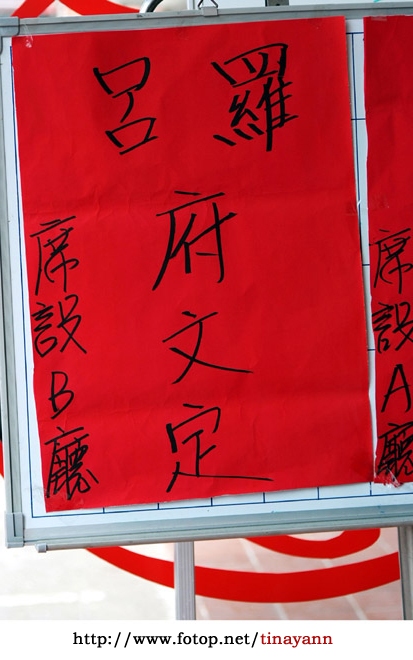 羅 呂
府文定
席設B廳
席設A廳
http://www.fotop.net/tinayann